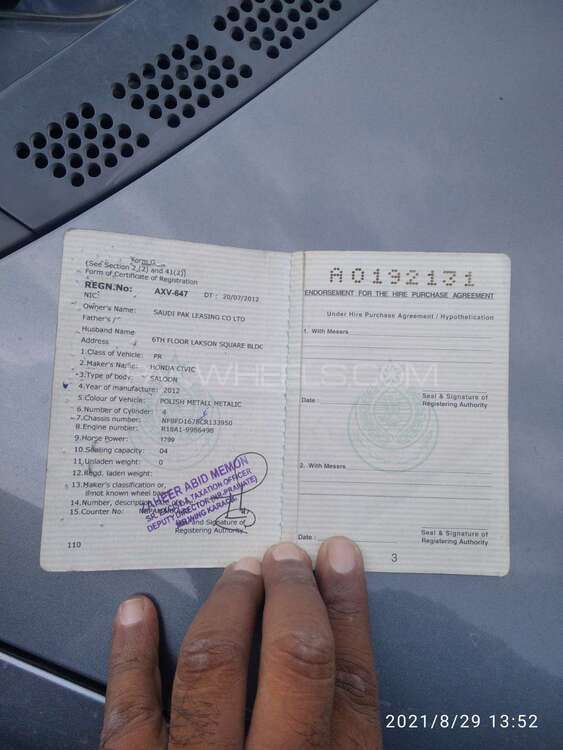 Form G
(See Section 2 (2) and 41(2))
Form of Certificate of Registration
REGN.No: AXV-647 DT : 20/07/2012
NIC:
Owner's Name: SAUDI PAK LEASING CO LTD
Father's /
Husband Name
Address 6TH FLOOR LAKSON SQUARE BLDC
1.Class of Vehicle: PR
2.Maker's Name: HONDA CIVIC
3.Type of body: SALOON
4.Year of manufacture: 2012
5.Colour of Vehicle: POLISH METALL METALIC
6.Number of Cylinder: 4
7.Chassis number: NFBFD1678CR133950
8.Engine number: R18A1-9986498
9.Horse Power: 1799
10.Seating capacity: 04
11.Unladen weight: 0
12.Regd. laden weight:
13.Maker's classification or,
if not known wheel base
14.Number, description
15.Counter No:
AHEER ABID MEMON
TAXATION OFFICER
DEPUTY DIRECTOR
KARACHI
and Signature of
Registering Authority
110
A0192131
ENDORSEMENT FOR THE HIRE PURCHASE AGREEMENT
Under Hire Purchase Agreement / Hypothetication
1. With Messrs
Date :
Seal & Signature of
Registering Authority
2. With Messrs
Date :
Seal & Signature of
Registering Authority
3
WHEELS.COM
2021/8/29 13:52